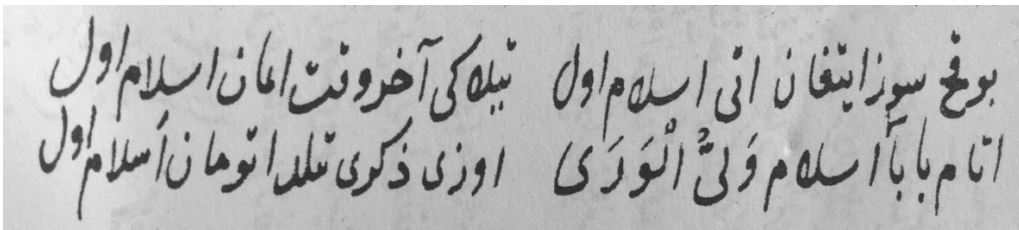 بو قح سوز ایتغان اتی اسلام اول تیلاکی آخر وقت امان اسلام اول
اتام بابا اسلام وَلیُّ الْوَرَی اوزی ذکری تلدا تومان اسلام اول